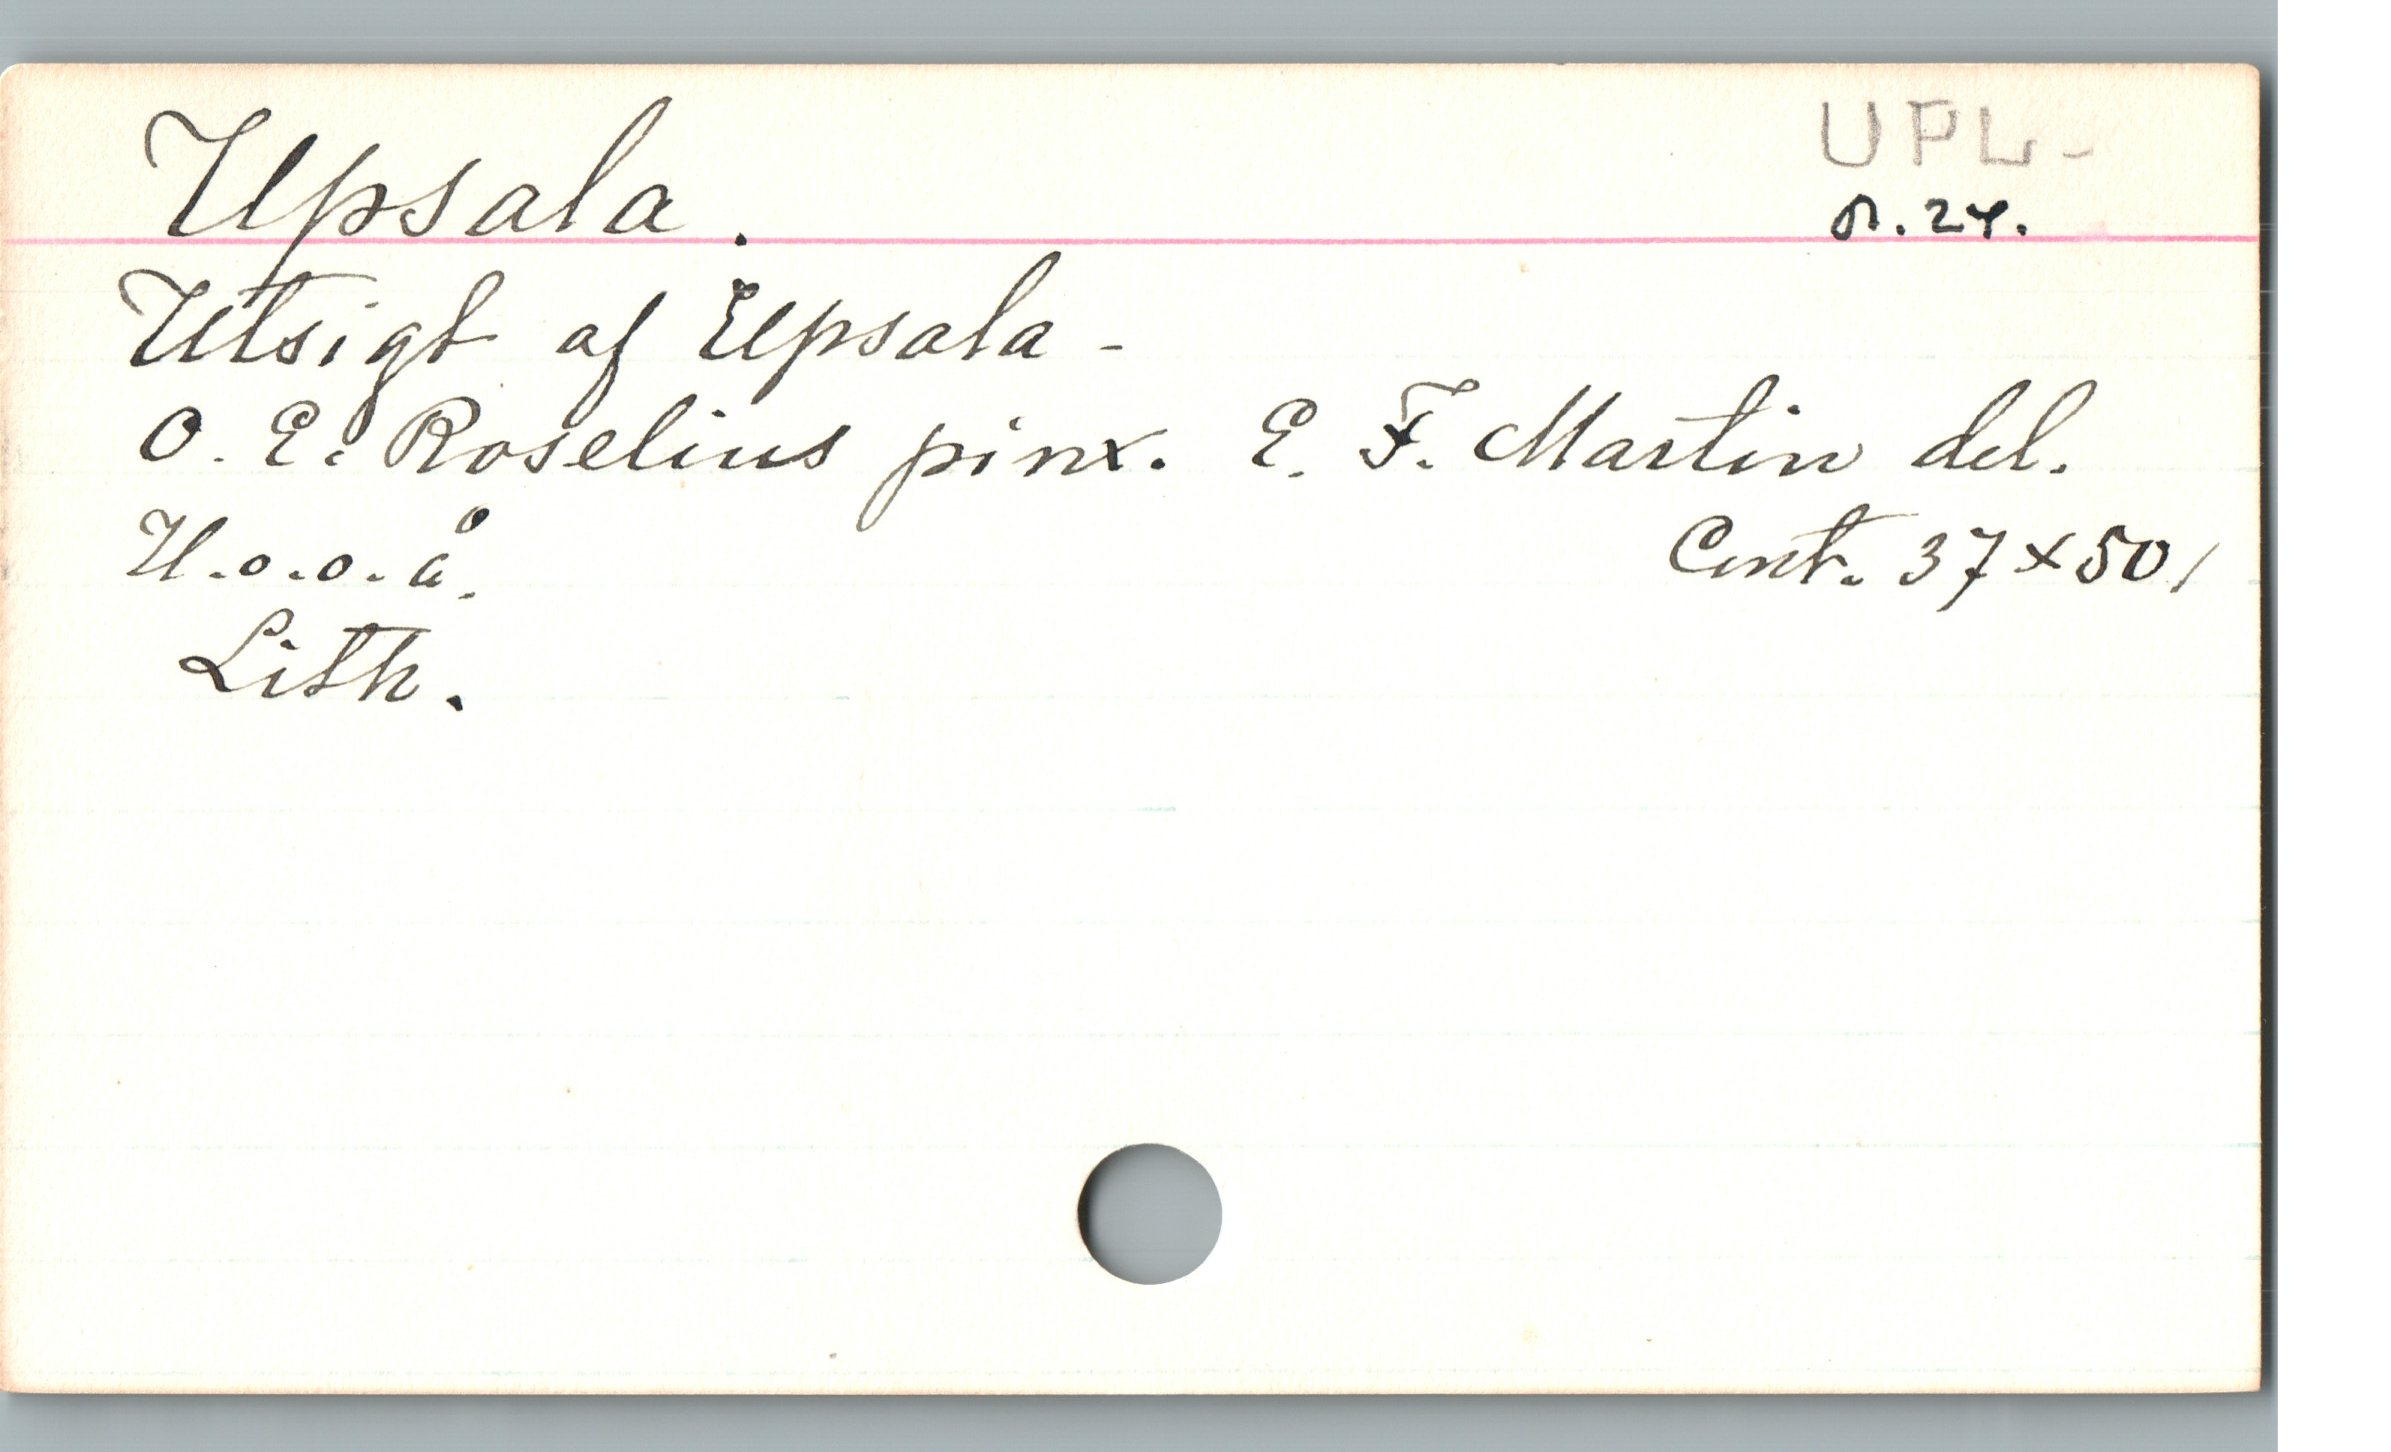 Upsala.
UPL-
n. 24.
Utsigt af Upsala -
O. E. Roselius pinx. E. F. Martin del.
U.o.o.å.
Cent. 37 x 50,
Lith.